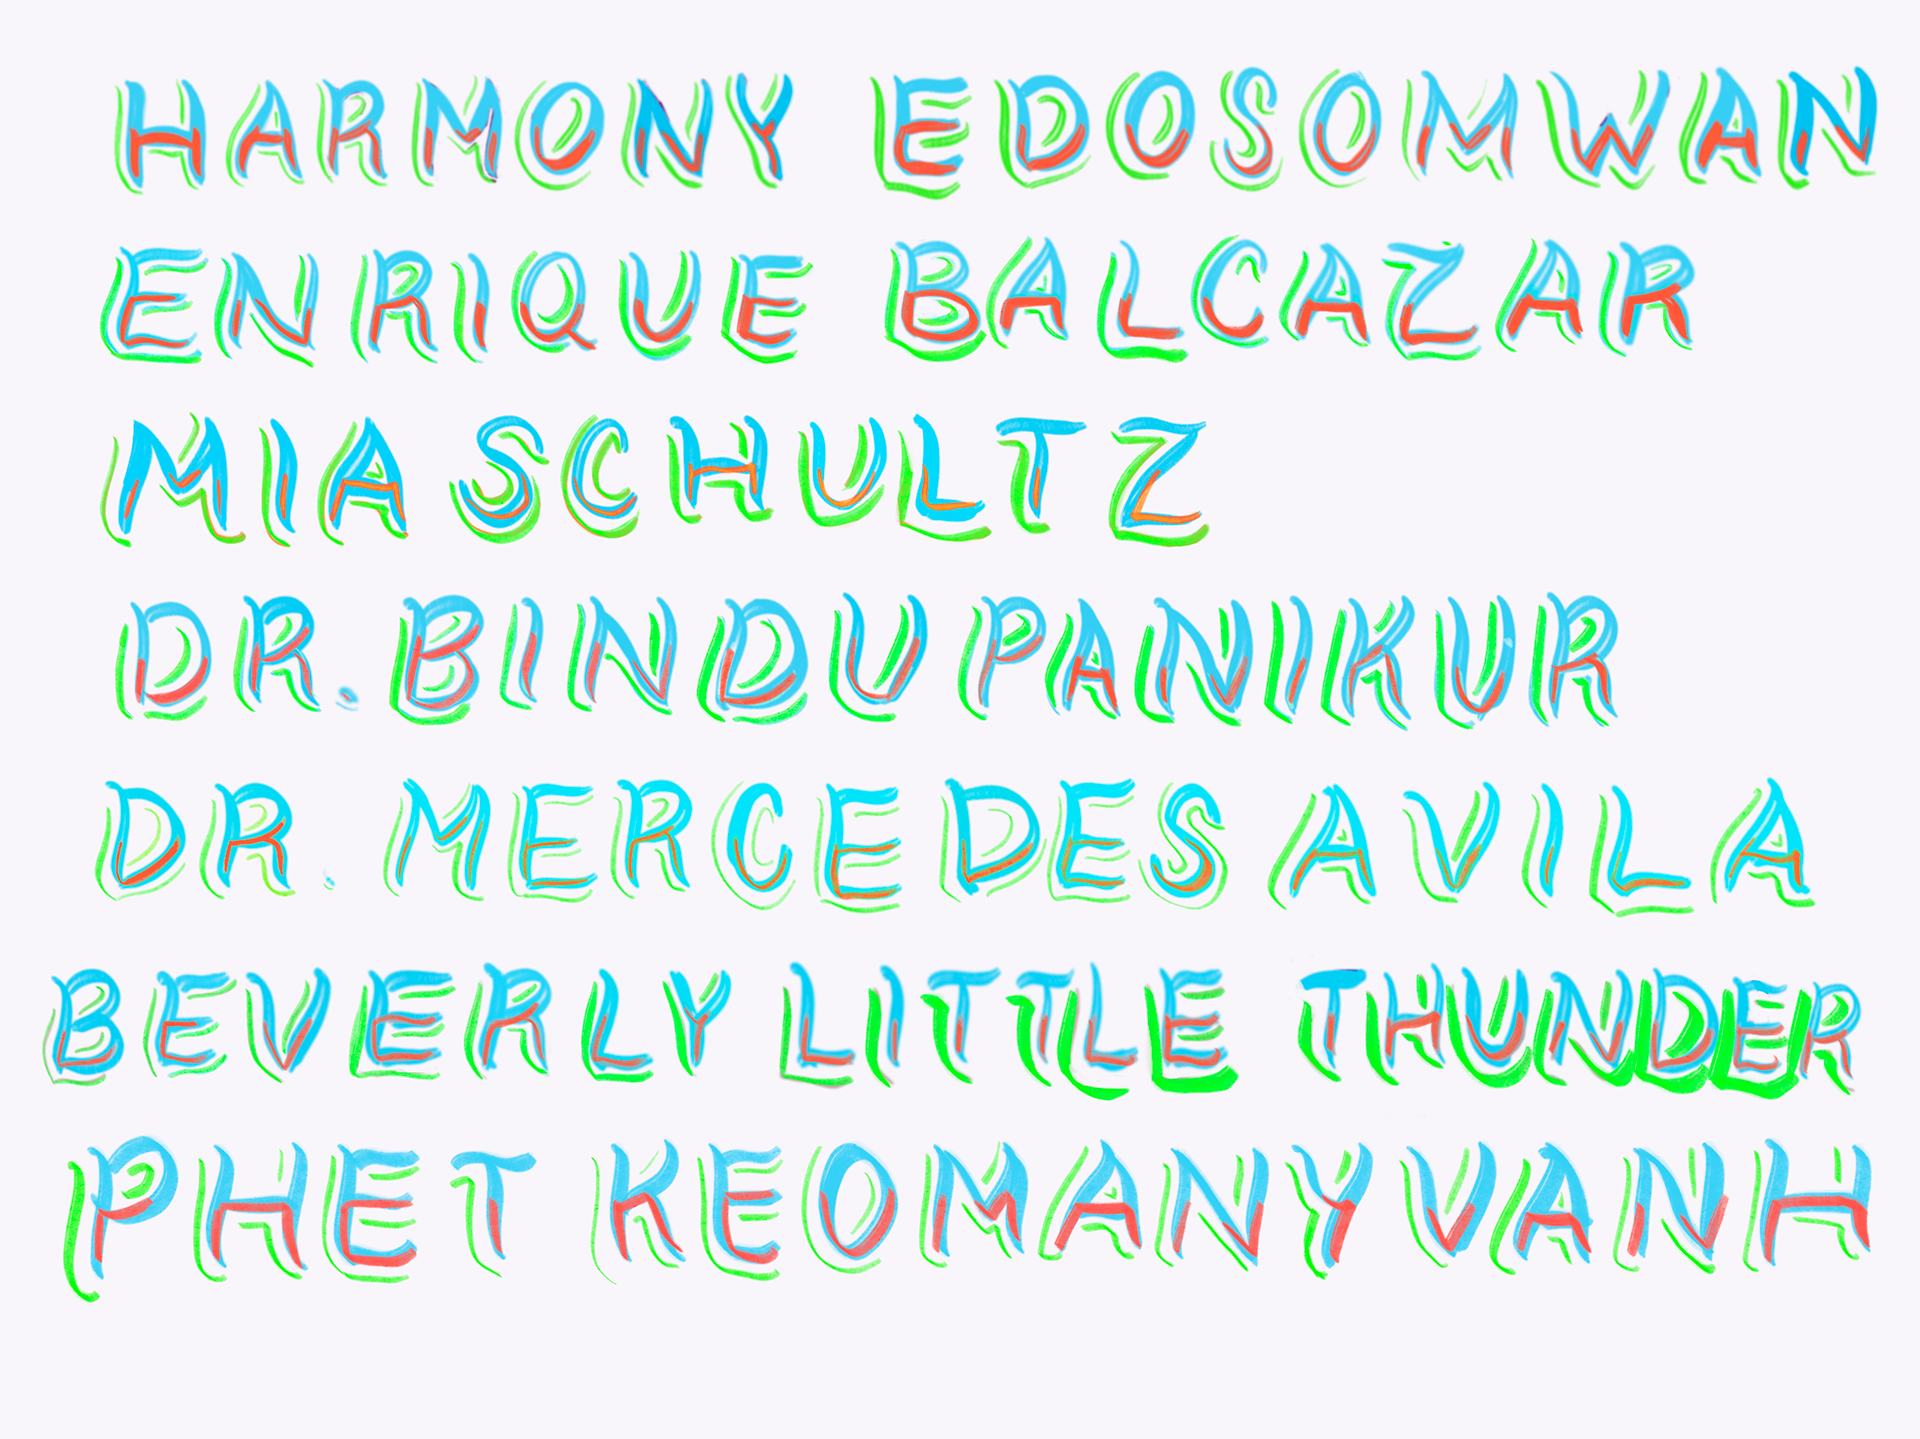 HARMONY EDOSOMWAN
ENRIQUE BALCAZAR
MIA SCHULTZ
DR. BINDU PANIKUR
DR. MERCEDES AVILA
BEVERLY LITTLE THUNDER
PHET KEOMANYVANH